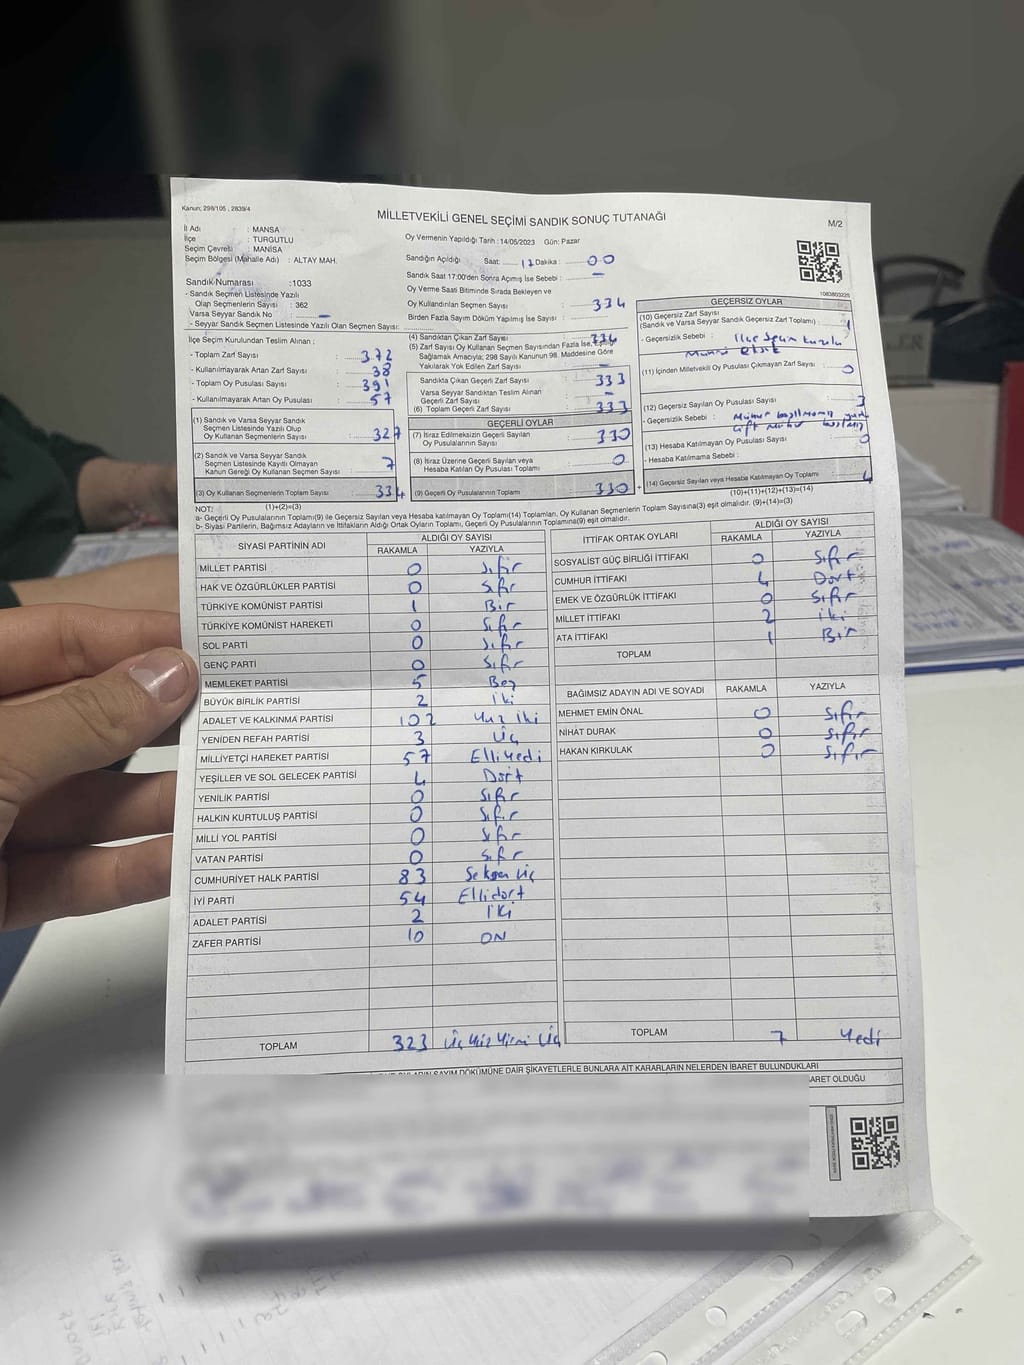 Kanun: 298/105 , 2839/4
MİLLETVEKİLİ GENEL SEÇİMİ SANDIK SONUÇ TUTANAĞI
M/2
İl Adı : MANİSA
İlçe : TURGUTLU
Seçim Çevresi : MANİSA
Seçim Bölgesi (Mahalle Adı) : ALTAY MAH.
Sandık Numarası :1033
- Sandık Seçmen Listesinde Yazılı
Olan Seçmenlerin Sayısı : 362
Varsa Seyyar Sandık No : –
- Seyyar Sandık Seçmen Listesinde Yazılı Olan Seçmen Sayısı:
Oy Vermenin Yapıldığı Tarih : 14/05/2023 Gün: Pazar
Sandığın Açıldığı Saat: 17 Dakika : 00
Sandık Saat 17:00'den Sonra Açılmış İse Sebebi : –
Oy Verme Saati Bitiminde Sırada Bekleyen ve
Oy Kullandırılan Seçmen Sayısı : 334
Birden Fazla Sayım Döküm Yapılmış İse Sayısı :
1083803226
İlçe Seçim Kurulundan Teslim Alınan ;
- Toplam Zarf Sayısı : 372
- Kullanılmayarak Artan Zarf Sayısı : 38
- Toplam Oy Pusulası Sayısı : 391
- Kullanılmayarak Artan Oy Pusulası : 57
(1) Sandık ve Varsa Seyyar Sandık
Seçmen Listesinde Yazılı Olup
Oy Kullanan Seçmenlerin Sayısı : 327
(2) Sandık ve Varsa Seyyar Sandık
Seçmen Listesinde Kayıtlı Olmayan
Kanun Gereği Oy Kullanan Seçmen Sayısı : 7
(3) Oy Kullanan Seçmenlerin Toplam Sayısı : 334
(1)+(2)=(3)
(4) Sandıktan Çıkan Zarf Sayısı : 334
(5) Zarf Sayısı Oy Kullanan Seçmen Sayısından Fazla İse, Eşitliği
Sağlamak Amacıyla; 298 Sayılı Kanunun 98. Maddesine Göre
Yakılarak Yok Edilen Zarf Sayısı : –
Sandıkta Çıkan Geçerli Zarf Sayısı : 333
Varsa Seyyar Sandıktan Teslim Alınan
Geçerli Zarf Sayısı : –
(6) Toplam Geçerli Zarf Sayısı : 333
GEÇERLİ OYLAR
(7) İtiraz Edilmeksizin Geçerli Sayılan
Oy Pusulalarının Sayısı : 330
(8) İtiraz Üzerine Geçerli Sayılan veya
Hesaba Katılan Oy Pusulası Toplamı : 0
(9) Geçerli Oy Pusulalarının Toplamı : 330
GEÇERSİZ OYLAR
(10) Geçersiz Zarf Sayısı
(Sandık ve Varsa Seyyar Sandık Geçersiz Zarf Toplamı) : 1
- Geçersizlik Sebebi : İlçe Seçim kurulu
Mührü eksik
(11) İçinden Milletvekili Oy Pusulası Çıkmayan Zarf Sayısı : 0
(12) Geçersiz Sayılan Oy Pusulası Sayısı : 3
- Geçersizlik Sebebi : Mühür basılmamış
çift mühür basılmış
(13) Hesaba Katılmayan Oy Pusulası Sayısı : 0
- Hesaba Katılmama Sebebi :
+ (14) Geçersiz Sayılan veya Hesaba Katılmayan Oy Toplamı : 4
(10)+(11)+(12)+(13)=(14)
NOT:
a- Geçerli Oy Pusulalarının Toplamı(9) ile Geçersiz Sayılan veya Hesaba Katılmayan Oy Toplamı(14) Toplamları, Oy Kullanan Seçmenlerin Toplam Sayısına(3) eşit olmalıdır. (9)+(14)=(3)
b- Siyasi Partilerin, Bağımsız Adayların ve İttifakların Aldığı Ortak Oyların Toplamı, Geçerli Oy Pusulalarının Toplamına(9) eşit olmalıdır.
SİYASİ PARTİNİN ADI ALDIĞI OY SAYISI
RAKAMLA YAZIYLA
MİLLET PARTİSİ 0 Sıfır
HAK VE ÖZGÜRLÜKLER PARTİSİ 0 Sıfır
TÜRKİYE KOMÜNİST PARTİSİ 1 Bir
TÜRKİYE KOMÜNİST HAREKETİ 0 Sıfır
SOL PARTİ 0 Sıfır
GENÇ PARTİ 0 Sıfır
MEMLEKET PARTİSİ 5 Beş
BÜYÜK BİRLİK PARTİSİ 2 İki
ADALET VE KALKINMA PARTİSİ 102 Yüz iki
YENİDEN REFAH PARTİSİ 3 Üç
MİLLİYETÇİ HAREKET PARTİSİ 57 Elliyedi
YEŞİLLER VE SOL GELECEK PARTİSİ 4 Dört
YENİLİK PARTİSİ 0 Sıfır
HALKIN KURTULUŞ PARTİSİ 0 Sıfır
MİLLİ YOL PARTİSİ 0 Sıfır
VATAN PARTİSİ 0 Sıfır
CUMHURİYET HALK PARTİSİ 83 Seksen üç
İYİ PARTİ 54 Ellidört
ADALET PARTİSİ 2 İki
ZAFER PARTİSİ 10 ON
TOPLAM 323 Üç Yüz Yirmi Üç
İTTİFAK ORTAK OYLARI ALDIĞI OY SAYISI
RAKAMLA YAZIYLA
SOSYALİST GÜÇ BİRLİĞİ İTTİFAKI 0 Sıfır
CUMHUR İTTİFAKI 4 Dört
EMEK VE ÖZGÜRLÜK İTTİFAKI 0 Sıfır
MİLLET İTTİFAKI 2 İki
ATA İTTİFAKI 1 Bir
TOPLAM
BAĞIMSIZ ADAYIN ADI VE SOYADI RAKAMLA YAZIYLA
MEHMET EMİN ÖNAL 0 Sıfır
NİHAT DURAK 0 Sıfır
HAKAN KIRKULAK 0 Sıfır
TOPLAM 7 Yedi
SAYIM DÖKÜMÜNE DAİR ŞİKAYETLERLE BUNLARA AİT KARARLARIN NELERDEN İBARET BULUNDUKLARI
OLDUĞU